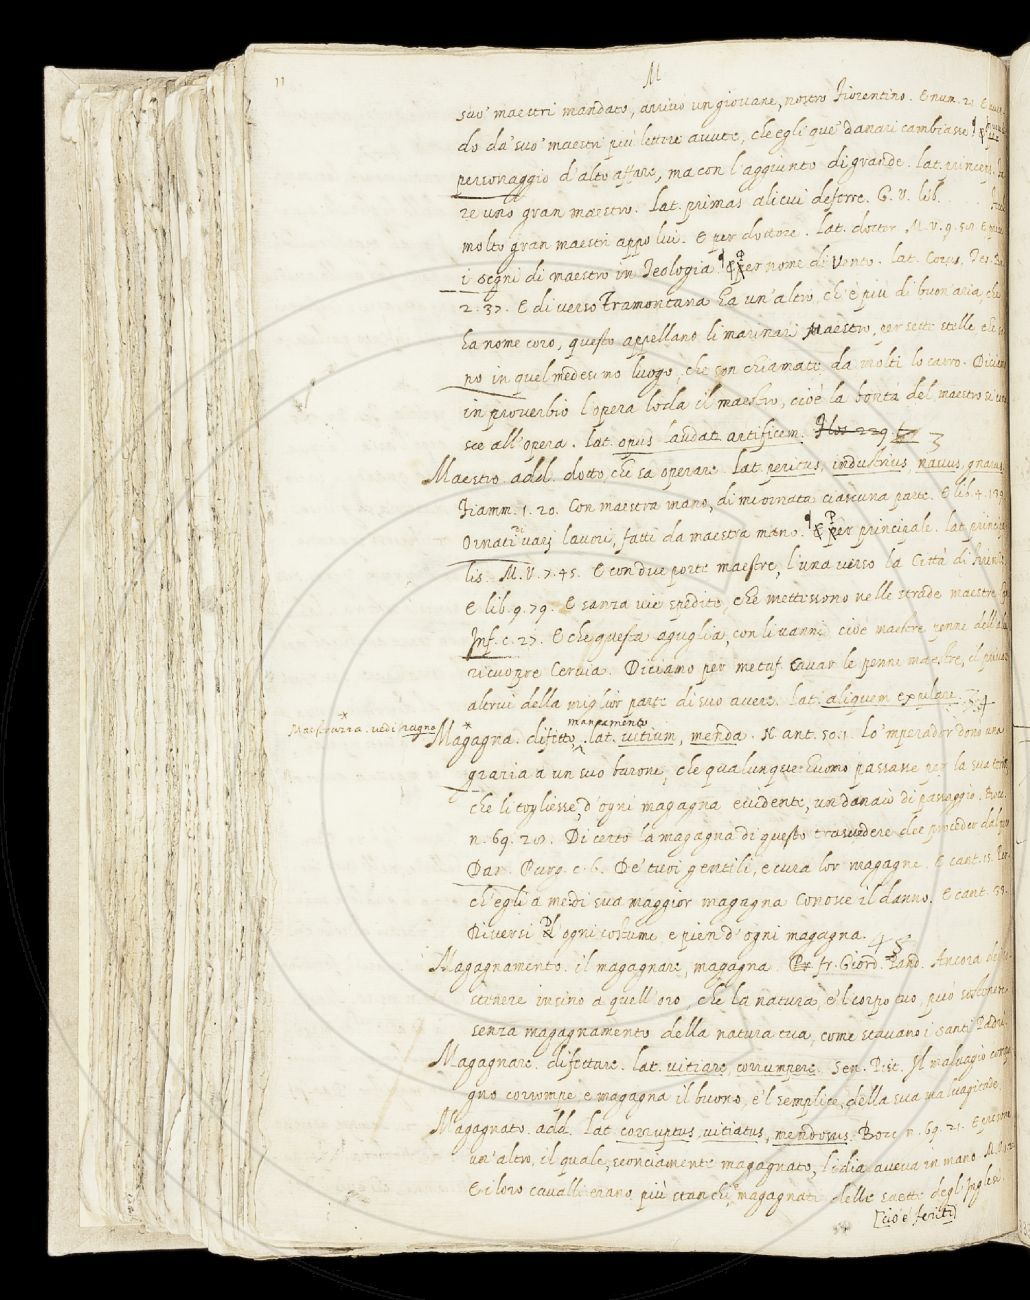 11
M
suo' maestri mandato, arrivò un giovane, nostro Fiorentino. E num. 2.
do da' suo' maestri più lettere avute, che egli que' danari cambiasse
personaggio d'alto affare, ma con l'aggiunto di grande. lat. princeps.
re uno gran maestro. lat. primas alicui deferre. G. V. lib.
molto gran maestri appo lui. E per dottore. lat. doctor. M. V. 9. 58.
i segni di maestro in Teologia. ¶ Per nome di Vento. lat. Corus. Tes.
2. 37. E di verso Tramontana ha un'altro, ch'è più di buon'aria, che
ha nome coro, questo appellano li marinari Maestro, per sette stelle che
no in quel medesimo luogo, che son chiamate da molti lo carro. Diciamo
in proverbio l'opera loda il maestro, cioè la bontà del maestro si
sce all'opera. lat. opus laudat artificem. Flos 229 3
Maestro add. dotto, che sa operare. lat. peritus, industrius, navus, gnarus.
Fiamm. 1. 20. Con maestra mano, di me ornata ciascuna parte. E lib. 4. 139.
Ornati di varj lavori, fatti da maestra mano. ¶ Per principale. lat. principa
lis. M. V. 7. 45. E con due porte maestre, l'una verso la Città di
E lib. 9. 79. E sanza vie spedite, che mettissono nelle strade maestre
Inf. c. 27. E che questa aguglia, con li vanni, cioè maestre penne dell'ala
ricuopre Cervia. Diciamo per metaf. Cavar le penne maestre, il privare
altrui della miglior parte di suo avere. lat. aliquem expilare. 4
Maestruzza. vedi rugna
Magagna. difetto, mancamento. lat. vitium, menda. N. ant. 50. 1. Lo 'mperador donò una
grazia a un suo barone, che qualunque huomo passasse per la sua terra
che li togliesse, d'ogni magagna evidente, un danaio di passaggio. Bocc.
n. 69. 28. Di certo la magagna di questo trasvedere dee proceder dal pero
Dan. Purg. c. 6. De' tuoi gentili, e cura lor magagne. E cant. 15. Per
ch'egli a me di sua maggior magagna Conosce il danno. E cant. 33.
Diversi D'ogni costume, e pien d'ogni magagna. 4 5
Magagnamento. il magagnare, magagna. Pr fr. Giord. Pand. Ancora
stenere insino a quell'oro, che la natura, e 'l corpo tuo, può sostenere
senza magagnamento della natura tua, come stavano i santi Padri.
Magagnare. difettare. lat. vitiare, corrumpere. Sen. Pist. Il malvagio
gno corrompe e magagna il buono, e 'l semplice, della sua malvagitade.
Magagnato. add. lat. corruptus, vitiatus, mendosus. Bocc. n. 69. 21.
un'altro, il quale, sconciamente magagnato, l'idia aveva in mano. M. V.
E i loro cavalli erano più stanchi, magagnati delle saette degl'Inglesi.
[cioè feriti]